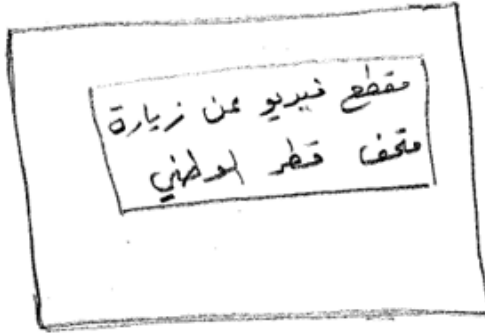 مقطع فيديو عن زيارة
متحف قطر الوطني